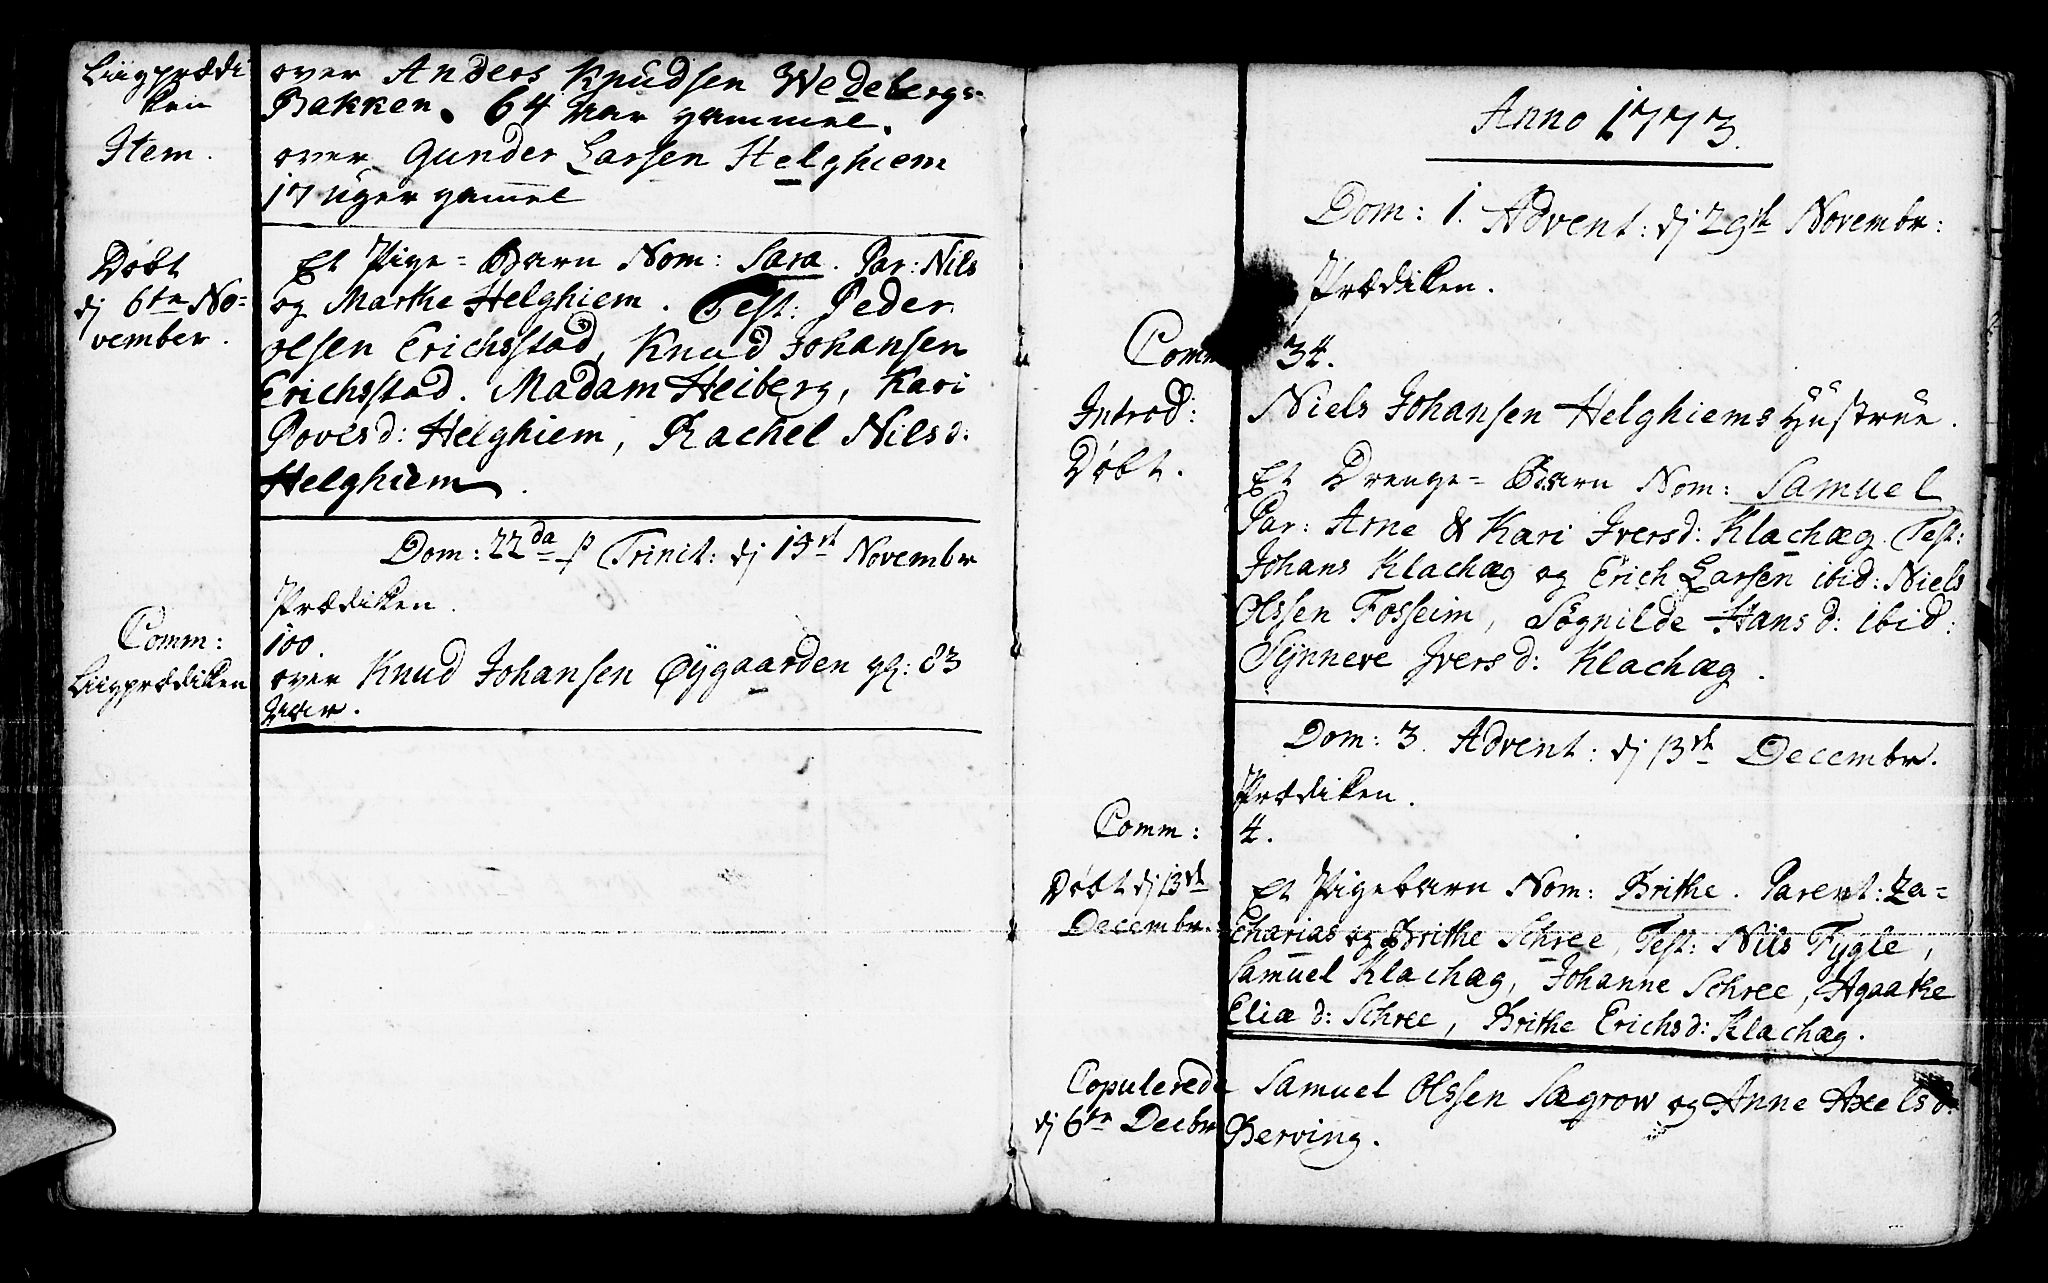 Liigprædi-
ken
over Anders Knudsen Wedebergs-
Bakken. 64 Aar gammel.
Item.
over Gunder Larsen Helghiem
17 uger gammel
Døbt
dj 6te No-
vember.
Et Pige-Barn Nom: Sara. Par: Nils
og Marthe Helghiem. Test: Peder
Olsen Erichsstad, Knud Johansen
Erichsstad. Madam Heiberg, Kari
Povelsd: Helghiem, Rachel Nilsd:
Helghiem.
Dom: 22da p Trinit: dj 15de Novembr
Prædiken.
Comm:
100.
Liigprædiken
over Knud Johansen Øygaarden gl: 83
Aar.
Anno 1773.
Dom: 1. Advent: dj 29de Novembr:
Prædiken.
Comm
34.
Introd:
Niels Johansen Helghiems Hustrue.
Døbt.
Et Drenge-Barn Nom: Samuel
Par: Arne & Kari Iversd: Klachæg. Test:
Johans Klachæg og Erich Larsen ibid: Niels
Olssen Fosseim, Søgnilde Hansd: ibid:
Synneve Iversd: Klachæg.
Dom: 3. Advent: dj 13de Decembr.
Prædiken.
Comm:
4.
Døbt dj 13de
Decembr.
Et Pigebarn Nom: Brithe. Parent: Za-
charias og Brithe Schree, Test: Nils Fygle,
Samuel Klachæg, Johanne Schree, Agaathe
Eliæ d: Schree, Brithe Erichsd: Klachæg.
Copulerede
dj 6te Decbr
Samuel Olssen Sægrow og Anne Axelsd:
Berving.